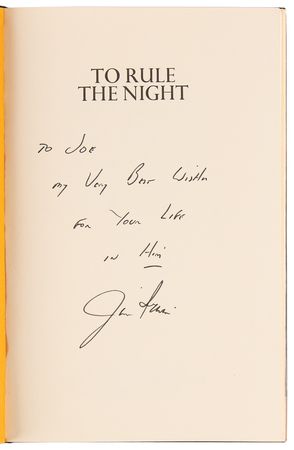 TO RULE
THE NIGHT
TO JOE
MY VERY BEST WISHES
FOR YOUR LIFE
IN HIM
Jim Irwin